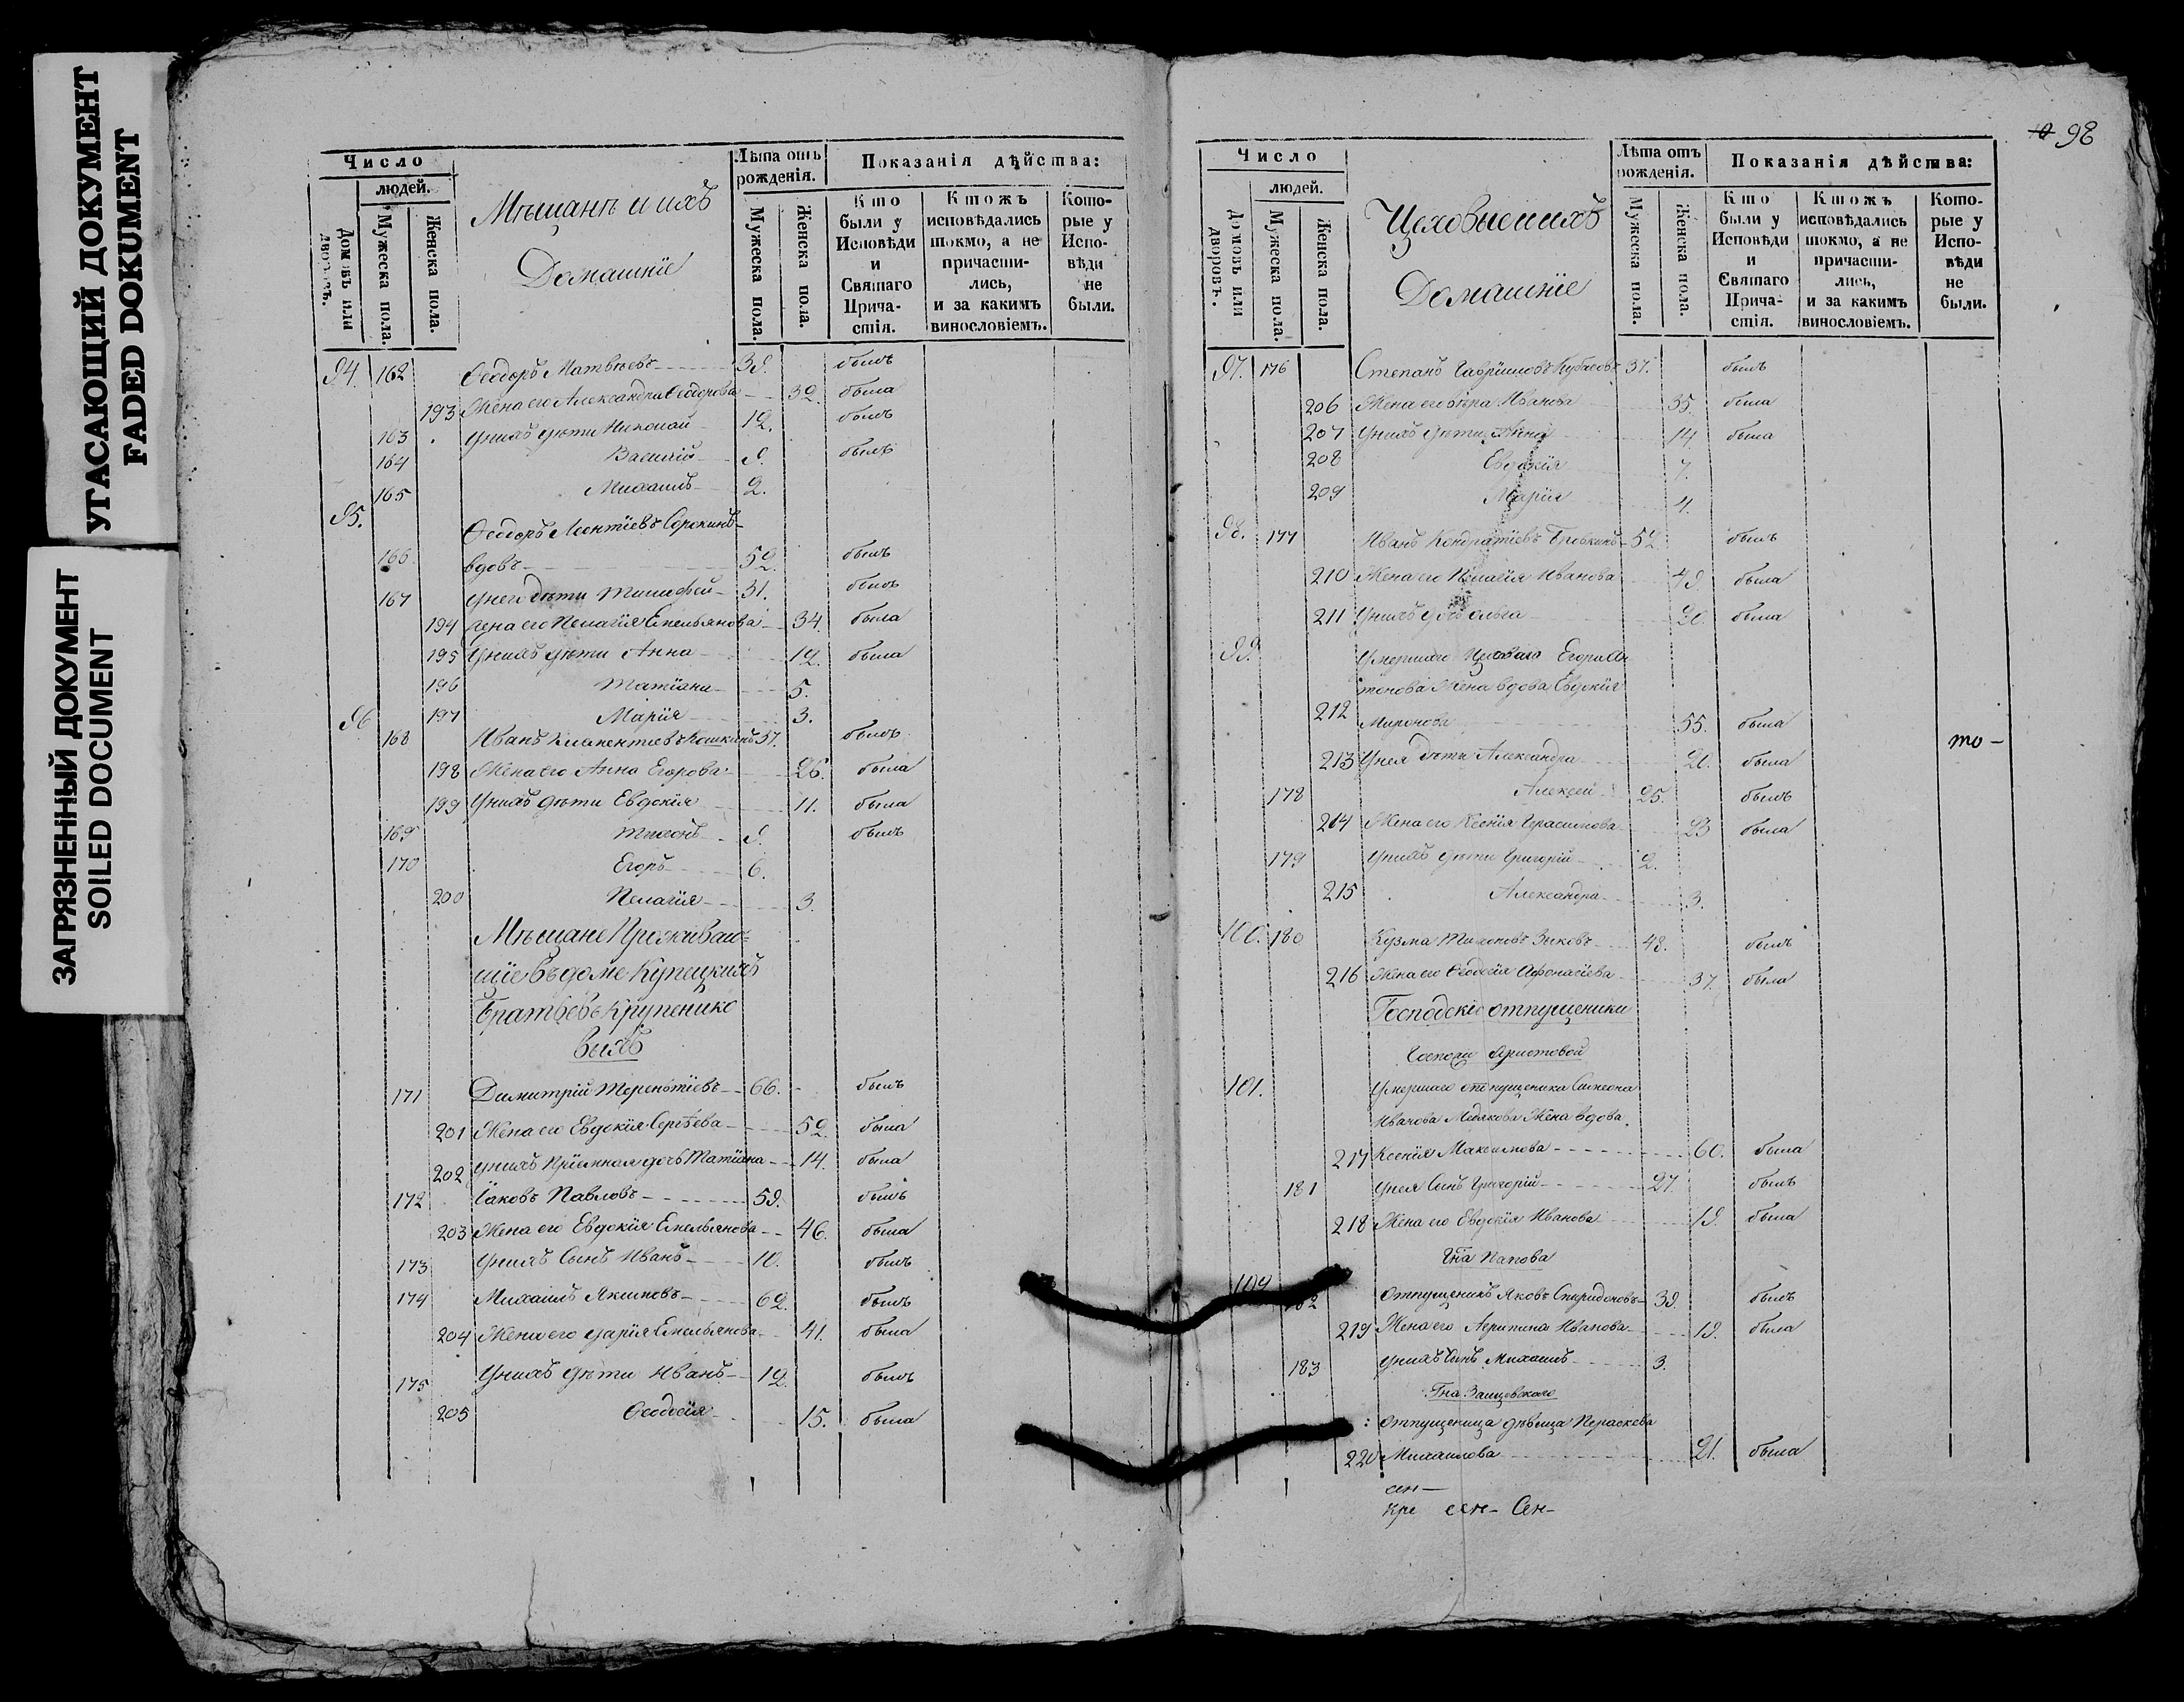 УГАСАЮЩИЙ ДОКУМЕНТ
FADED DOKUMENT
ЗАГРЯЗНЕННЫЙ ДОКУМЕНТ
SOILED DOCUMENT
Число
людей.
Домовъ или дворовъ.
Мужеска пола.
Женска пола.
Мѣщанъ и ихъ
Домашніе
Лѣта отъ рожденія.
Мужеска пола.
Женска пола.
Показанія дѣйства:
Кто были у Исповѣди и Святаго Причастія.
Ктожъ исповѣдались токмо, а не причастились, и за какимъ винословіемъ.
Которые у Исповѣди не были.
94. 162 Ѳеодоръ Матвѣевъ 39. былъ
193 Жена его Александра Ѳеодорова 32. была
163 Унихъ дѣти Николай 12. былъ
164 Василій 9. былъ
165 Михаилъ 2.
95. Ѳеодоръ Леонтіевъ Сорокинъ
166 вдовъ 52. былъ
167 Унего дѣти Тимофей 31. былъ
194 жена его Пелагія Емельянова 34. была
195 Унихъ дѣти Анна 12. была
196 Татіана 5.
197 Марія 3.
96 168 Иванъ Климентиевъ Кошкинъ 37. былъ
198 Жена его Анна Егорова 26. была
199 Унихъ дѣти Евдокія 11. была
169 Тихонъ 9. былъ
170 Егоръ 6.
200 Пелагія 3.
Мѣщане Проживаю-
щіе въ доме Купецкихъ
Братьевъ Крупенико
выхъ
171 Димитрій Терентіевъ 66. былъ
201 Жена его Евдокія Сергѣева 52. была
202 Унихъ пріемная дочь Татіана 14. была
172 Іаковъ Павловъ 59. былъ
203 Жена его Евдокія Емельянова 46. была
173 Унихъ Сынъ Иванъ 10. былъ
174 Михаилъ Якимовъ 62. былъ
204 Жена его Дарія Емельянова 41. была
175 Унихъ дѣти Иванъ 12. былъ
205 Ѳеодосія 15. была
98
Число
людей.
Домовъ или дворовъ.
Мужеска пола.
Женска пола.
Цеховые и ихъ
Домашніе
Лѣта отъ рожденія.
Мужеска пола.
Женска пола.
Показанія дѣйства:
Кто были у Исповѣди и Святаго Причастія.
Ктожъ исповѣдались токмо, а не причастились, и за какимъ винословіемъ.
Которые у Исповѣди не были.
97. 176 Степанъ Гавриловъ 37. былъ
206 Жена его Вѣра Иванова 35. была
207 Унихъ дѣти Анна 14. была
208 Евдокія 7.
209 Марія 4.
98. 177 Иванъ Кондратіевъ 52. былъ
210 Жена его Пелагія Иванова 49. была
211 Унихъ дочь Ольга 20. была
99. Умершаго Цеховаго Егора Ан
тонова Жена вдова Евдокія
212 Миронова 55. была
213 Унея дѣти Александра 20. была
то-
178 Алексей 25. былъ
214 Жена его Ксенія Герасимова 23 была
179 Унихъ дѣти Григорій 2.
215 Александра 3.
100. 180 Кузма Тихоновъ Зыковъ 48. былъ
216 Жена его Ѳеодосія Афонасіева 37. была
Господскіе отпущеники
Госпожи
101. Умершаго отпущеника Симеона
Иванова Медякова Жена вдова
217 Ксенія Максимова 60. была
181 Унея Сынъ Григорій 27. былъ
218 Жена его Евдокія Иванова 19. была
Гна Папова
102 182 Отпущеникъ Яковъ Спиридоновъ 39. былъ
219 Жена его Иванова 19. была
183 Унихъ Сынъ Михаилъ 3.
Гна
Отпущеница дѣвица Пераскева
220 Михаилова 21. была
сен-
кре сен- Сен-